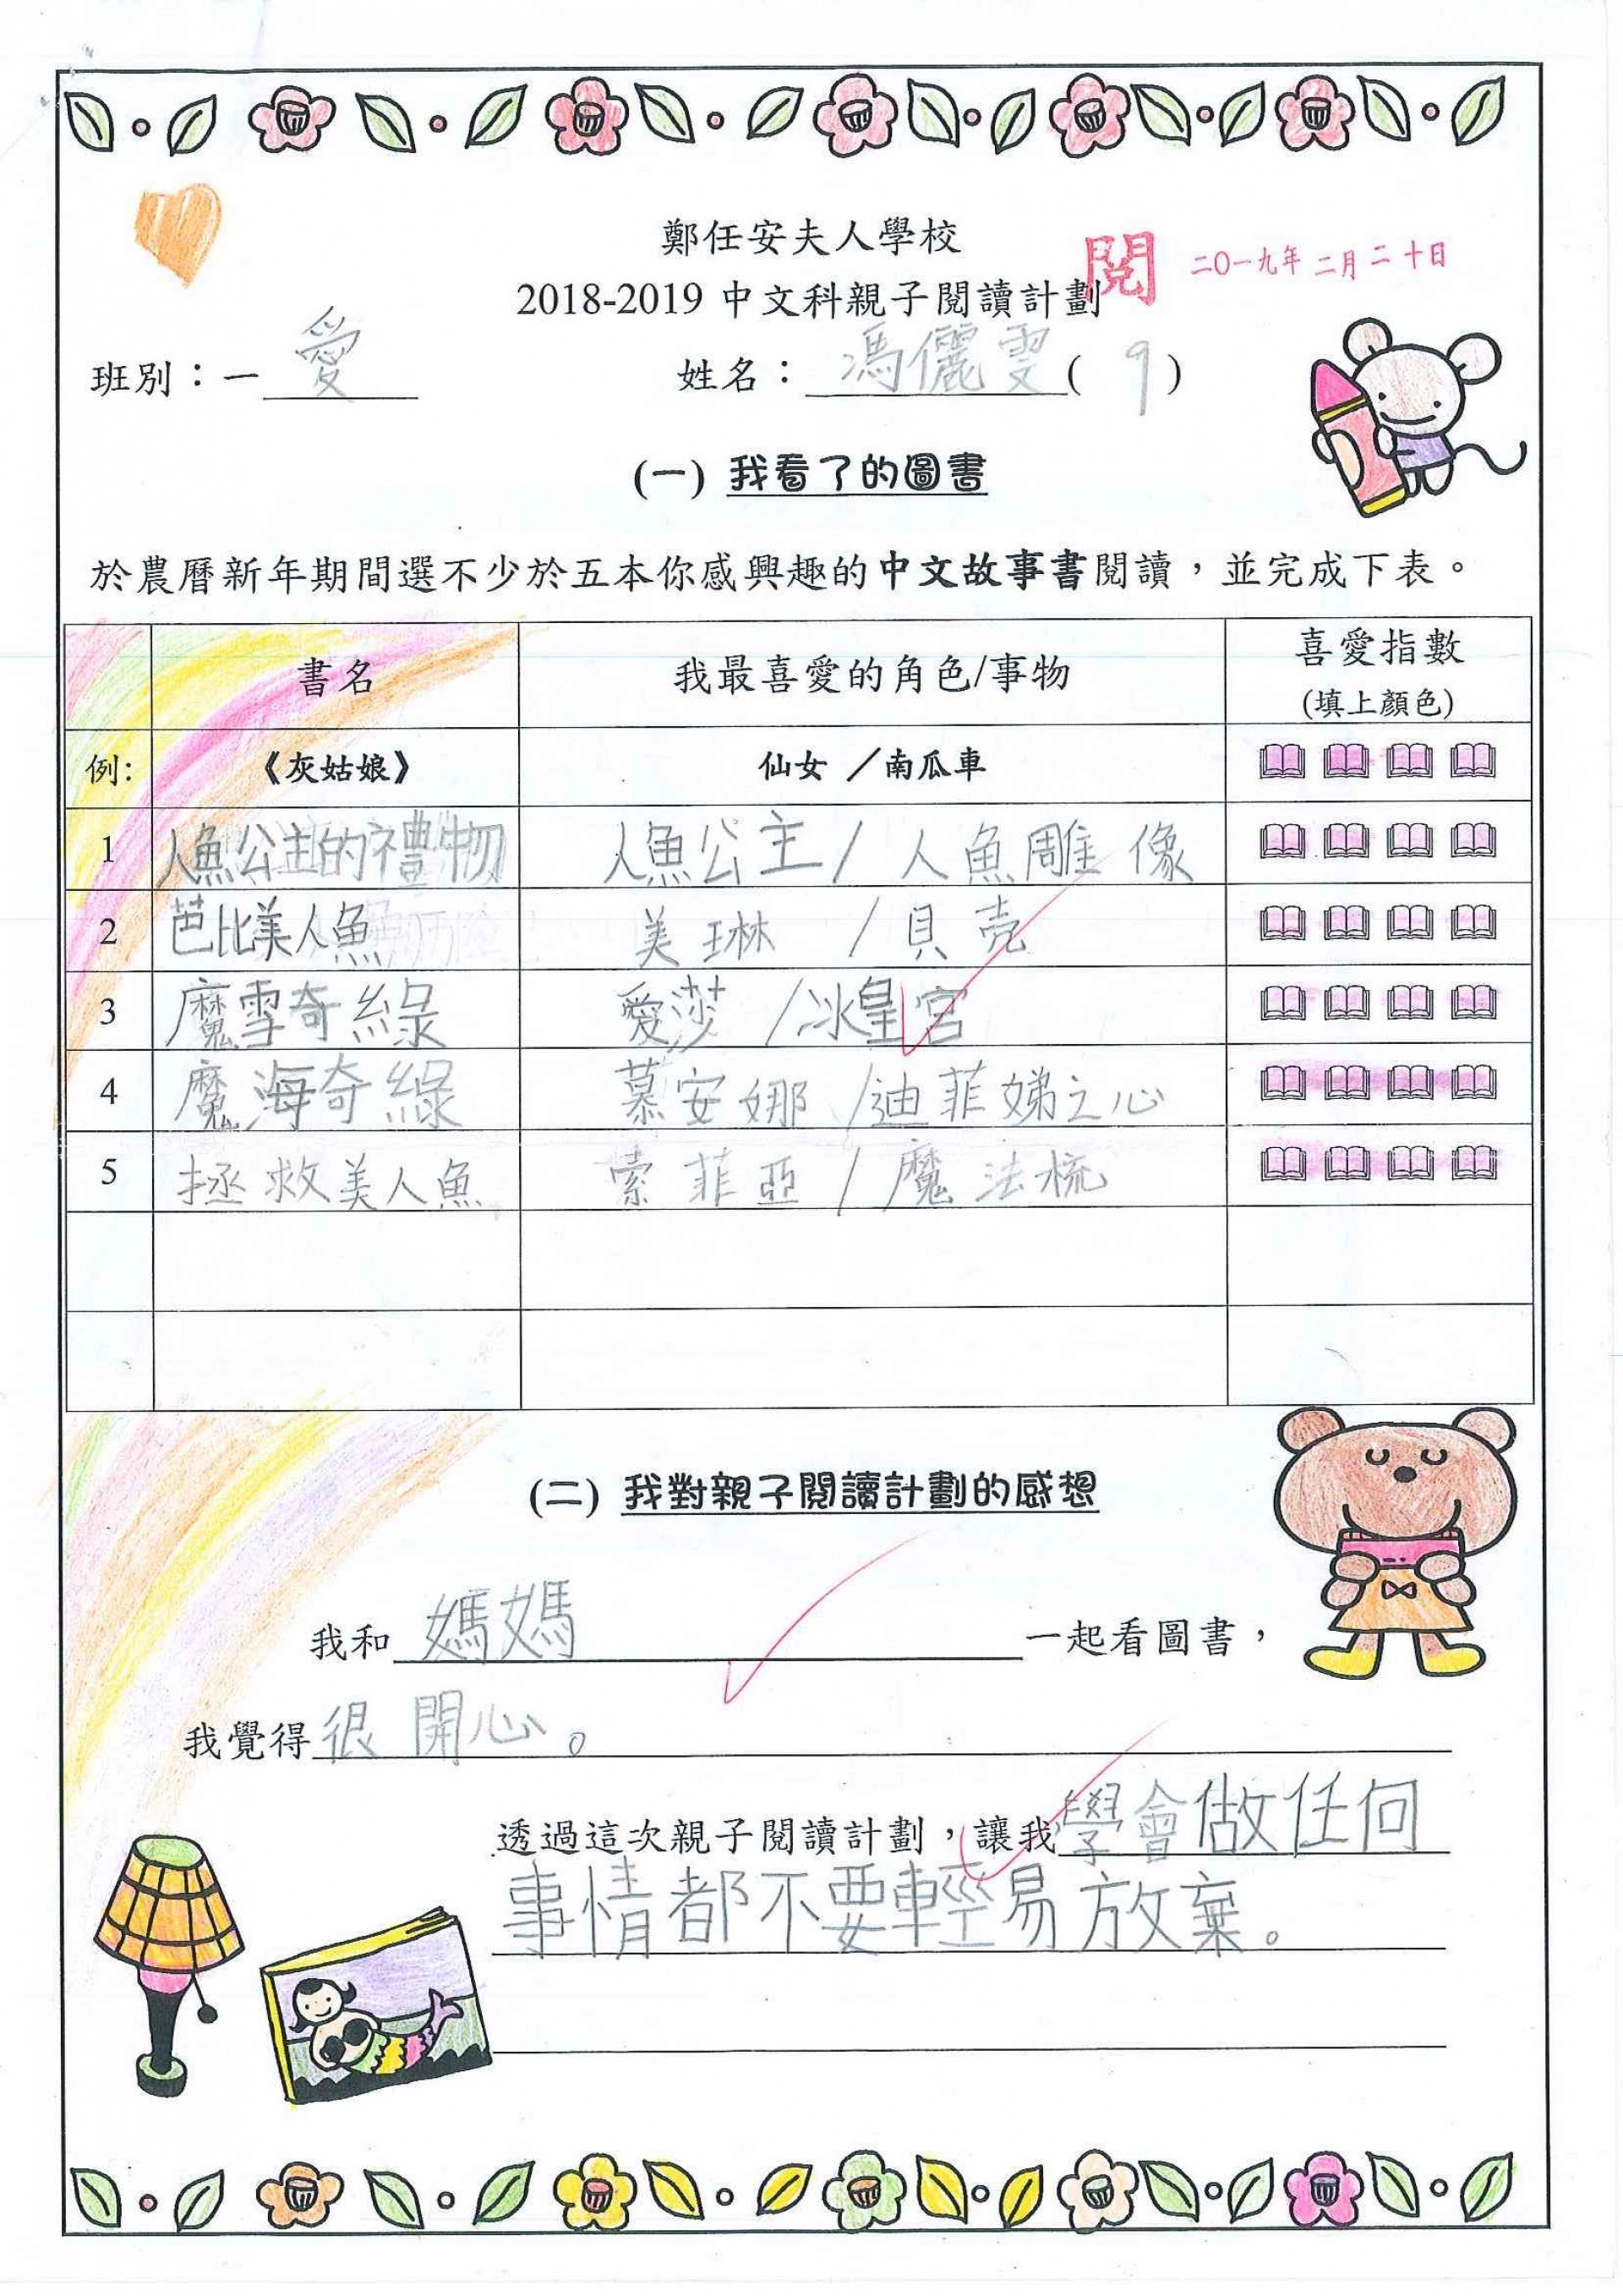 鄭任安夫人學校
閱 二〇一九年 二月 二十日
2018-2019 中文科親子閱讀計劃
班別：一 愛 姓名： 馮儷雯 ( 9 )
(一) 我看了的圖書
於農曆新年期間選不少於五本你感興趣的中文故事書閱讀，並完成下表。
書名 我最喜愛的角色/事物 喜愛指數
(填上顏色)
例: 《灰姑娘》 仙女 ／南瓜車
1 人魚公主的禮物 人魚公主 / 人魚雕像
2 芭比美人魚 美琳 / 貝壳
3 魔雪奇綠 愛莎 / 冰皇宮
4 魔海奇綠 慕安娜 / 迪菲娣之心
5 拯救美人魚 索菲亞 / 魔法梳
(二) 我對親子閱讀計劃的感想
我和 媽媽 一起看圖書，
我覺得 很開心。
透過這次親子閱讀計劃，讓我 學會做任何
事情都不要輕易放棄。